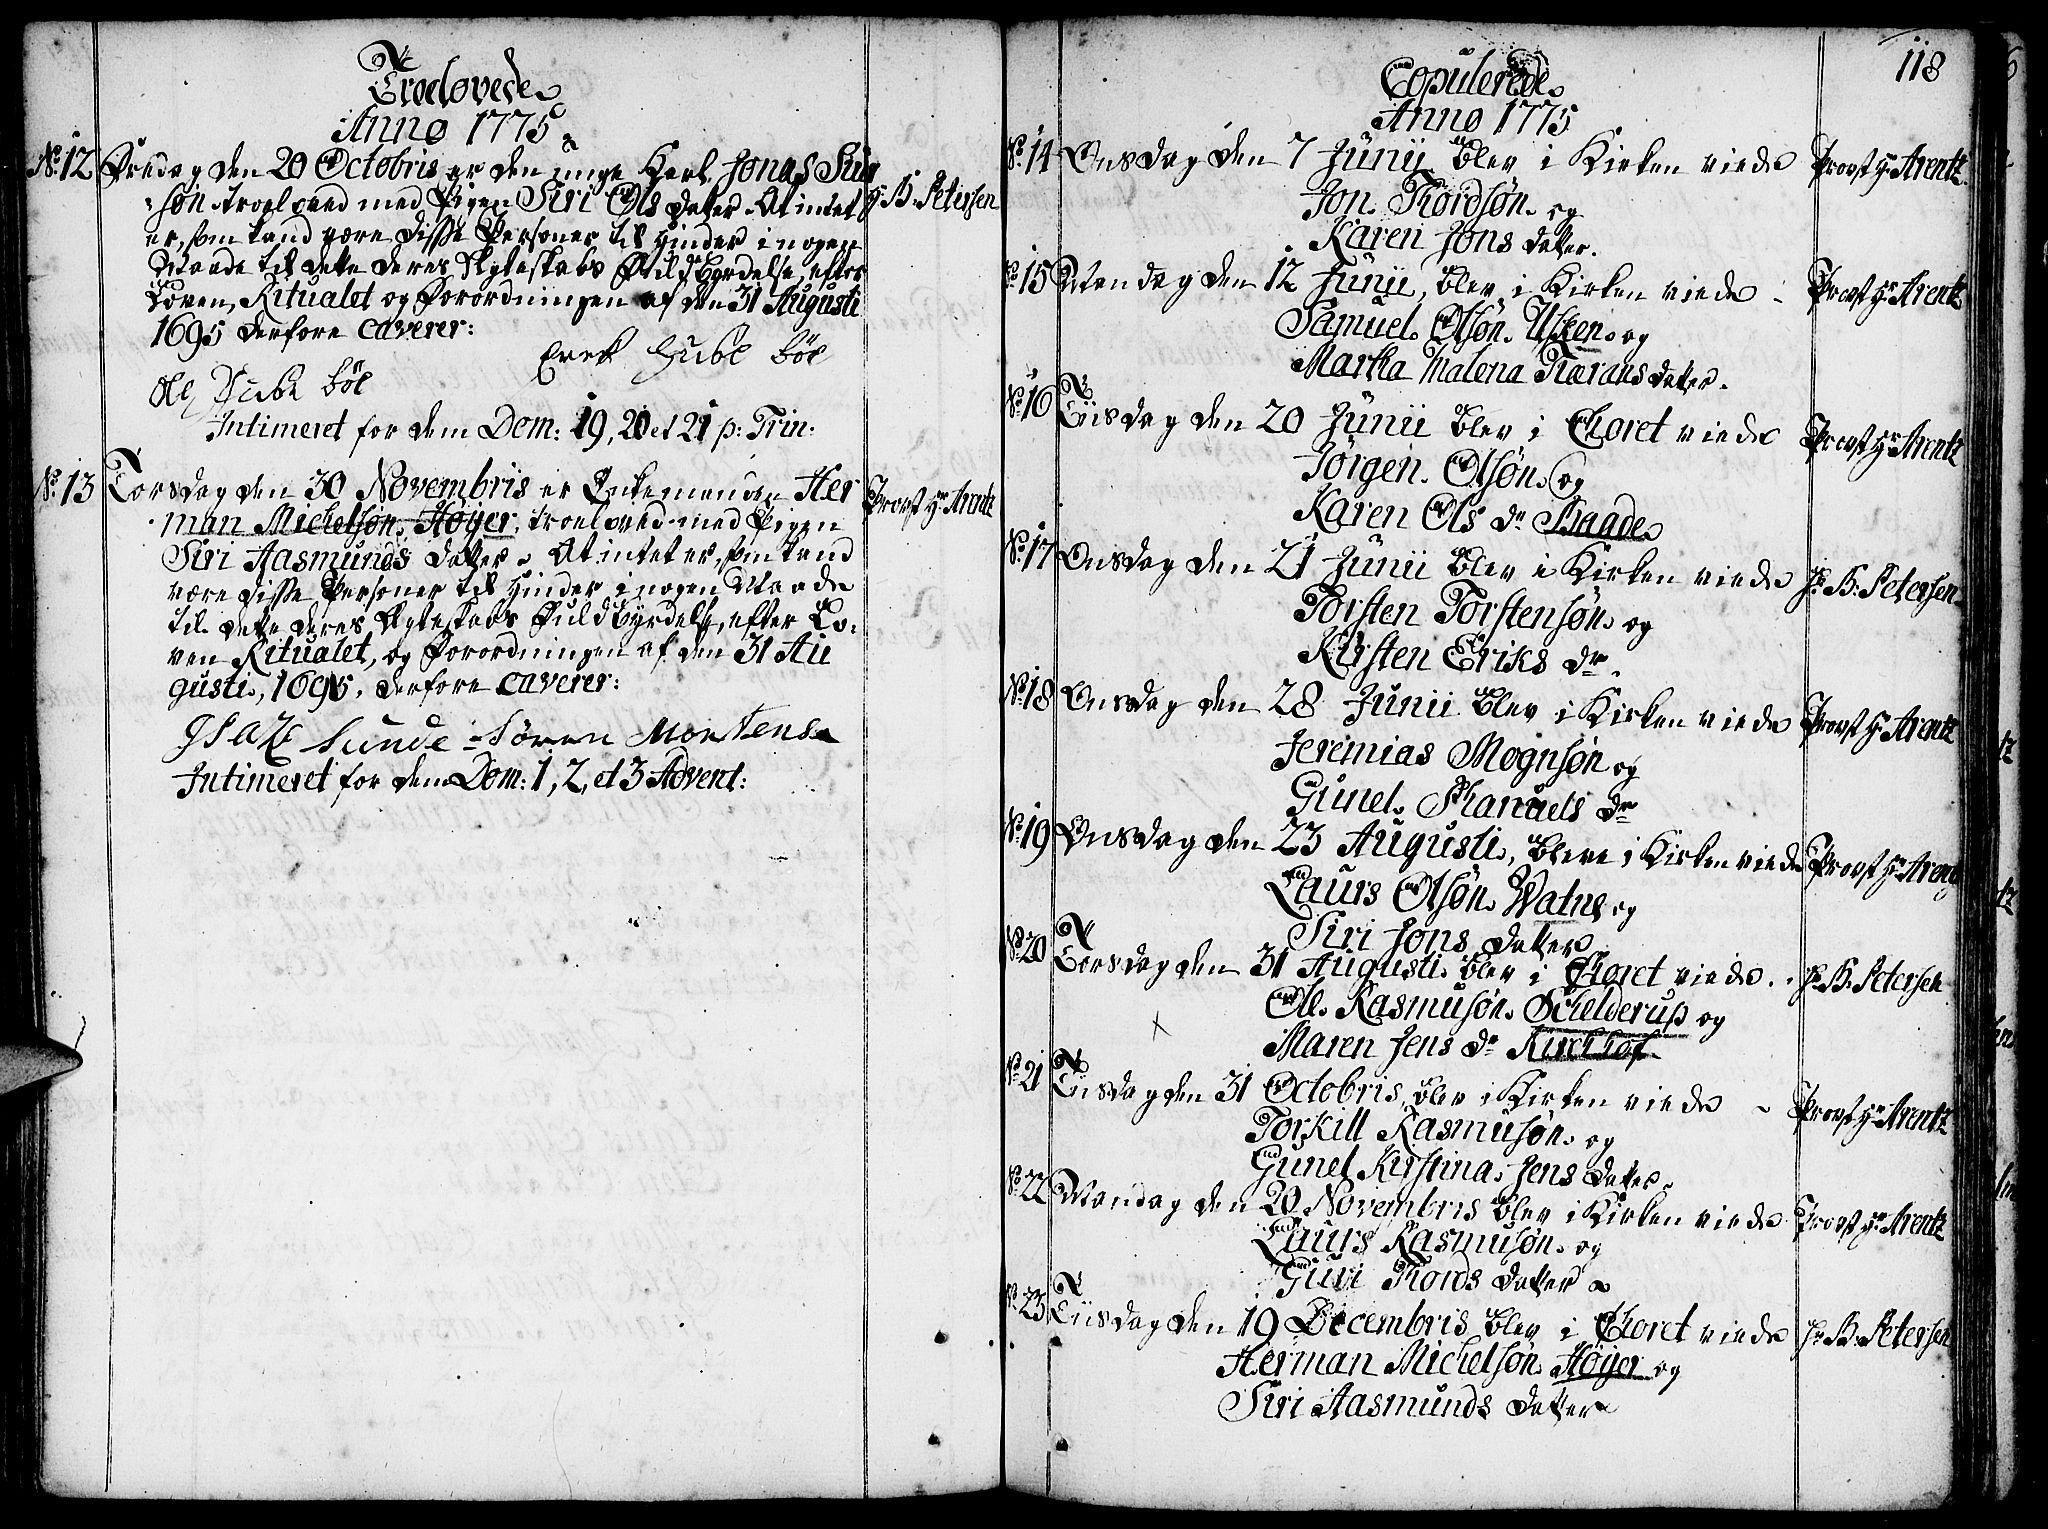 Troelovede
Anno 1775
No. 12 Fredag den 20 Octobris er den unge Karl Jonas Siur
søn troelovved med Pigen Siri Ols datter. At intet
er, som kand være disse Personer til Hinder i nogen
Maade til dette deres Ægteskabs Fuldbyrdelse, efter
Loven, Ritualet og Forordningen af den 31 Augusti
1695 derfore caverer:
Hr. B. Petersen
Erek Hube böe
Ole Hube böe
Intimeret for dem Dom: 19, 20 et 21 p: Trin:
No. 13 Torsdag den 30 Novembris er Enkemanden Her
man Michelsøn Høyer, troelovved med Pigen
Siri Aasmunds datter. At intet er, som kand
være disse Personer til Hinder i nogen Maade
til dette deres Ægteskabs Fuldbyrdelse, efter Lo-
ven Ritualet, og Forordningen af den 31 Au
gusti, 1695, derfore caverer:
Provst Hr Arentz
Isak Sunde Sören Mortensen
Intimeret for dem Dom: 1, 2, et 3 Advent:
118
Copulerede
Anno 1775
No. 14 Onsdag den 7 Junii blev i Kirken viede Provst Hr Arentz
Jon Thordsøn og
Karen Jons datter.
No. 15 Mandag den 12 Junii, blev i Kirken viede Provst Hr Arentz
Samuel Olsøn Usken og
Martha Malena Tharans datter.
No. 16 Tiisdag den 20 Junii blev i Choret viede Provst Hr Arentz
Jørgen Olsøn og
Karen Ols dr Baade
No. 17 Onsdag den 21 Junii blev i Kirken viede Hr B: Petersen
Torsten Torstensøn og
Kirsten Eriks dr.
No. 18 Onsdag den 28 Junii blev i Kirken viede Provst Hr Arentz
Jeremias Mognsøn og
Gunel Thanuels dr
No. 19 Onsdag den 23 Augusti, bleve i Kirken viede Provst Hr Arentz
Laurs Olsøn Watne og
Siri Jons datter
No. 20 Torsdag den 31 Augusti blev i Choret viede. Hr B: Petersen
Ole Rasmusøn Schelderup og
Maren Jens dr Kirchhof
No. 21 Tiisdag den 31 Octobris, blev i Kirken viede Provst Hr Arentz
Torkill Rasmusøn og
Gunel Kirstina Jens datter
No. 22 Mandag den 20 Novembris blev i Kirken viede Provst Hr Arentz
Laurs Rasmusøn og
Guri Thords datter
No. 23 Tiisdag den 19 Decembris blev i Choret viede Hr B: Petersen
Herman Michelsøn Høyer og
Siri Aasmunds datter